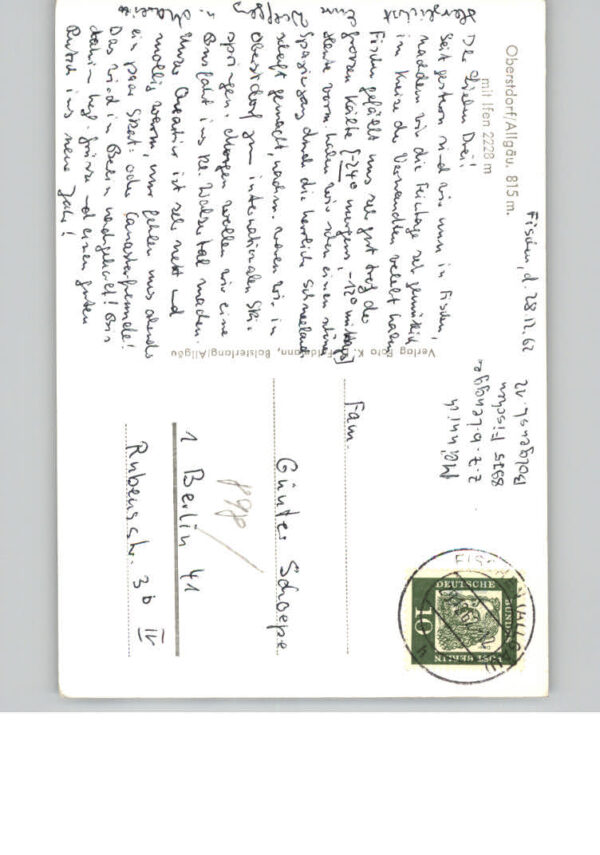 Oberstdorf/Allgäu. 815 m.
mit Ifen 2228 m
Fischen, d. 28.12.62
Ihr lieben Drei!
Seit gestern sind wir nun in Fischen,
nachdem wir die Feiertage sehr gemütlich
im Kreise der Verwandten verlebt haben.
Fischen gefällt uns sehr gut trotz der
großen Kälte (-24° morgens, -12° mittags)
Heute vorm. haben wir schon einen schönen
Spaziergang durch die herrliche Schneeland-
schaft gemacht, nachm. waren wir in
Oberstdorf zum internationalen Ski-
springen. Morgen wollen wir eine
Busfahrt ins Kl. Walsertal machen.
Unser Quartier ist sehr nett und
mollig warm, nur fehlen uns abends
ein paar Skat- oder Canastafreunde!
Das wird in Berlin nachgeholt! Bis
dahin herzl. Grüße und einen guten
Rutsch ins neue Jahr!
Verlag Foto K. Feldmann, Bolsterlang/Allgäu
z.Z. b. Lenggle
8975 Fischen
Bolgenstr. 12
Fam.
Günter Schoepe
1 Berlin 41
Rubensstr. 3b IV
DEUTSCHE
BUNDESPOST BERLIN
10
FISCHEN (ALLGÄU)